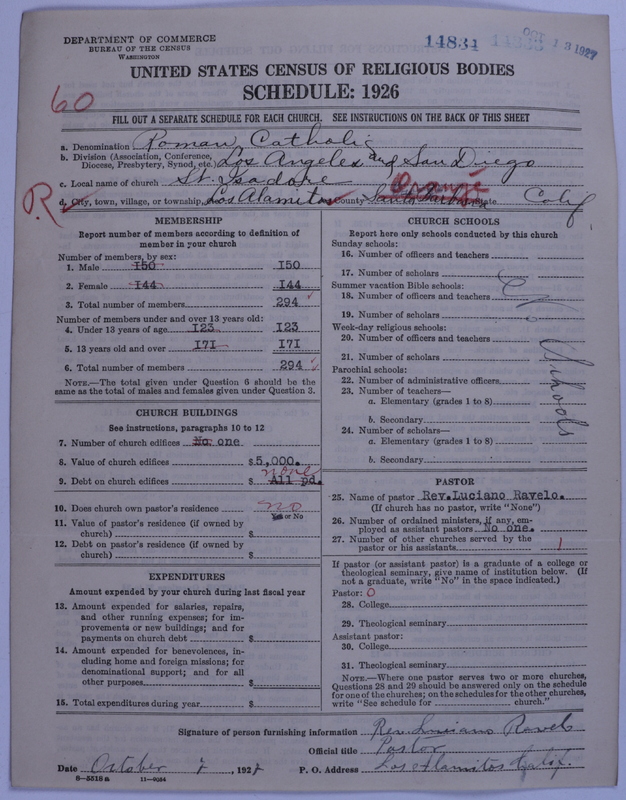 DEPARTMENT OF COMMERCE
BUREAU OF THE CENSUS
WASHINGTON
14834 14833 OCT 13 1927
UNITED STATES CENSUS OF RELIGIOUS BODIES
SCHEDULE: 1926
60
FILL OUT A SEPARATE SCHEDULE FOR EACH CHURCH. SEE INSTRUCTIONS ON THE BACK OF THIS SHEET
a. Denomination Roman Catholic
b. Division (Association, Conference, Diocese, Presbytery, Synod, etc.) Los Angeles and San Diego
c. Local name of church St. Isadore
Orange
R. d. City, town, village, or township Los Alamitos County Santa Barbara State Calif
MEMBERSHIP
Report number of members according to definition of
member in your church
Number of members, by sex:
1. Male 150 150
2. Female 144 144
3. Total number of members 294
Number of members under and over 13 years old:
4. Under 13 years of age 123 123
5. 13 years old and over 171 171
6. Total number of members 294
NOTE.—The total given under Question 6 should be the
same as the total of males and females given under Question 3.
CHURCH BUILDINGS
See instructions, paragraphs 10 to 12
7. Number of church edifices No one
8. Value of church edifices $5,000.
none
9. Debt on church edifices $ All pd.
10. Does church own pastor's residence? no
Yes or No
11. Value of pastor's residence (if owned by
church) $
12. Debt on pastor's residence (if owned by
church) $
EXPENDITURES
Amount expended by your church during last fiscal year
13. Amount expended for salaries, repairs,
and other running expenses; for im-
provements or new buildings; and for
payments on church debt $
14. Amount expended for benevolences, in-
cluding home and foreign missions; for
denominational support; and for all
other purposes $
15. Total expenditures during year $
CHURCH SCHOOLS
Report here only schools conducted by this church
Sunday schools:
16. Number of officers and teachers
17. Number of scholars
Summer vacation Bible schools:
18. Number of officers and teachers
19. Number of scholars
Week-day religious schools:
20. Number of officers and teachers
21. Number of scholars
Parochial schools:
22. Number of administrative officers
23. Number of teachers—
a. Elementary (grades 1 to 8)
b. Secondary
24. Number of scholars—
a. Elementary (grades 1 to 8)
b. Secondary
Schools
PASTOR
25. Name of pastor Rev.Luciano Ravelo.
(If church has no pastor, write "None")
26. Number of ordained ministers, if any, em-
ployed as assistant pastors No one.
27. Number of other churches served by the
pastor or his assistants 1
If pastor (or assistant pastor) is a graduate of a college or
theological seminary, give name of institution below. (If
not a graduate, write "No" in the space indicated.)
Pastor: 0
28. College
29. Theological seminary
Assistant pastor:
30. College
31. Theological seminary
NOTE.—Where one pastor serves two or more churches,
Questions 28 and 29 should be answered only on the schedule
for one of the churches; on the schedules for the other churches,
write "See schedule for church."
Signature of person furnishing information Rev. Luciano Ravelo
Official title Pastor
Date October 7, 1927 P. O. Address Los Alamitos Calif.
8—5518 a 11—9054